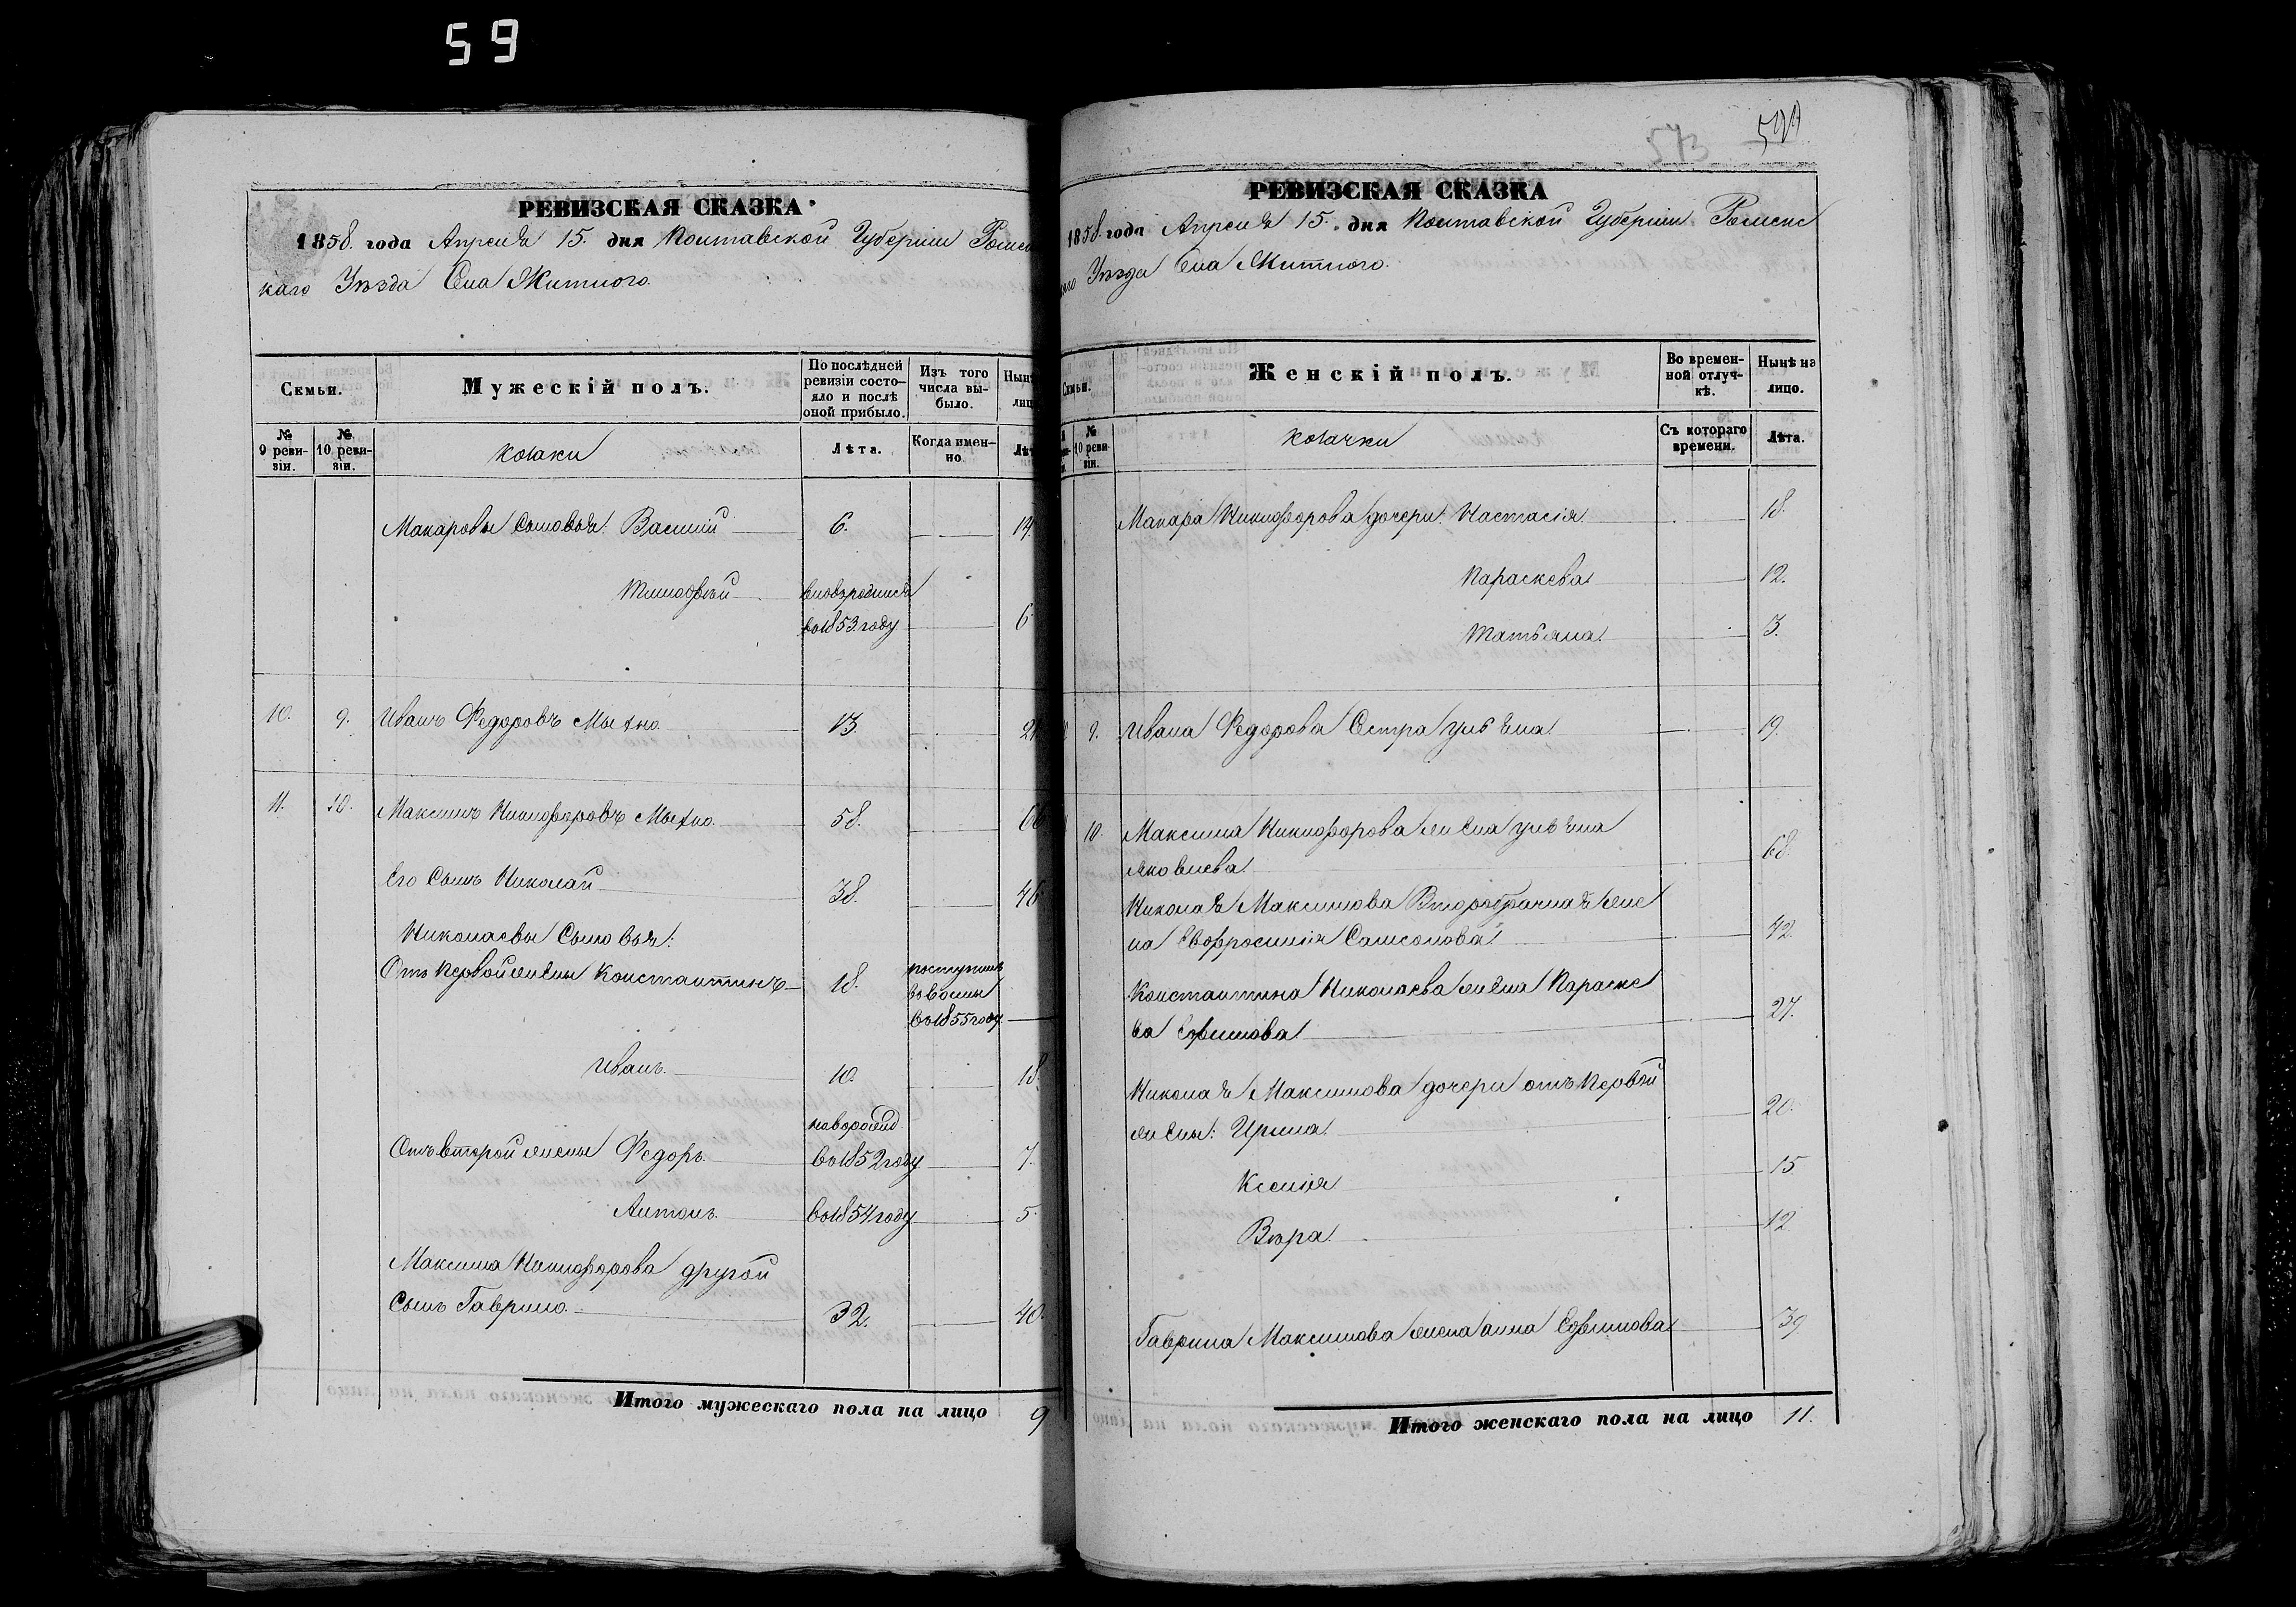 59
573
РЕВИЗСКАЯ СКАЗКА
1858. года Апреля 15. дня Полтавской Губерніи Ромен
каго Уѣзда Села Житного.
Семьи.
Мужескій полъ.
По послѣдней ревизіи состояло и послѣ оной прибыло.
Изъ того числа выбыло.
Нынѣ
лиц
№ 9 ревизіи.
№ 10 ревизіи.
козаки
Лѣта.
Когда именно
Лѣт
Макаровы Сыновья: Василій 6. 14.
Тимофѣй вновьродился
во 1853 году 6
10. 9. Иванъ Федоровъ Мыхно. 13. 21
11. 10. Максимъ Никифоровъ Мыхно. 58. 66
Его Сынъ Николай 38. 46
Николаевы Сыновья:
Отъ Первой жены Константинъ 18. поступилъ
во 1855 году.
Иванъ. 10. 18.
Отъ второй жены Федоръ. новорожд.
во 1852 году 7.
Антонъ. во 1854 году 5.
Максима Никифорова другой
Сынъ Гаврило. 32. 40.
Итого мужескаго пола на лицо 9
РЕВИЗСКАЯ СКАЗКА
1858. года Апреля 15. дня Полтавской Губерніи Роменс
каго Уѣзда Села Житного.
Семьи.
Женскій полъ.
Во временной отлучкѣ.
Нынѣ на лицо.
№ 10 ревизіи.
козачки
Съ котораго времени.
Лѣта.
Макара Никифорова дочери: Настасія 18.
Параскева 12.
Татьяна 3.
9. Ивана Федорова Сестра Ульяна 19.
10. Максима Никифорова жена Ульяна
Яковлева 68.
Николая Максимова Второбрачная же
на Евфросинія Самсонова 42.
Константина Николаева жена Параске
ва Ефимова 27.
Николая Максимова дочери отъ Первой
жены: Ирина 20.
Ксенія 15
Вѣра. 12
Гаврила Максимова жена Анна Ефимова 39
Итого женскаго пола на лицо 11.